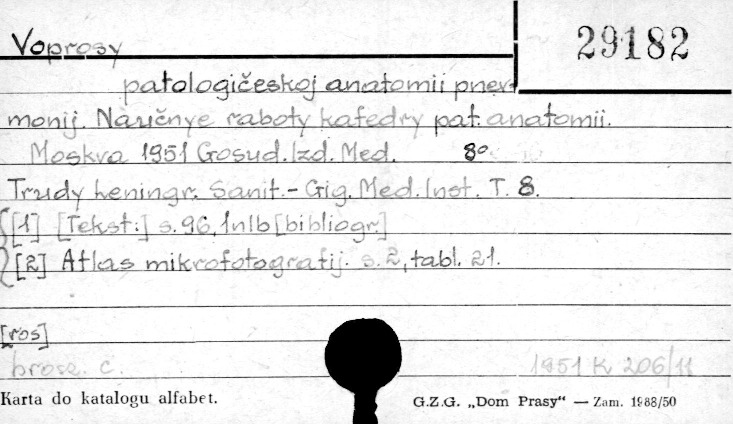 Voprosy
29182
patologičeskoj anatomii pnev
monij. Naučnye raboty kafedry pat. anatomii.
Moskva 1951 Gosud. Izd. Med. 8°
Trudy Leningr. Sanit.- Gig. Med. Inst. T. 8.
[1] [Tekst:] s. 96, 1nlb [bibliogr.]
[2] Atlas mikrofotografij. s. 2, tabl. 21.
[ros]
brosz. c. 1951 K 206/11
Karta do katalogu alfabet.
G.Z.G. „Dom Prasy" — Zam. 1988/50